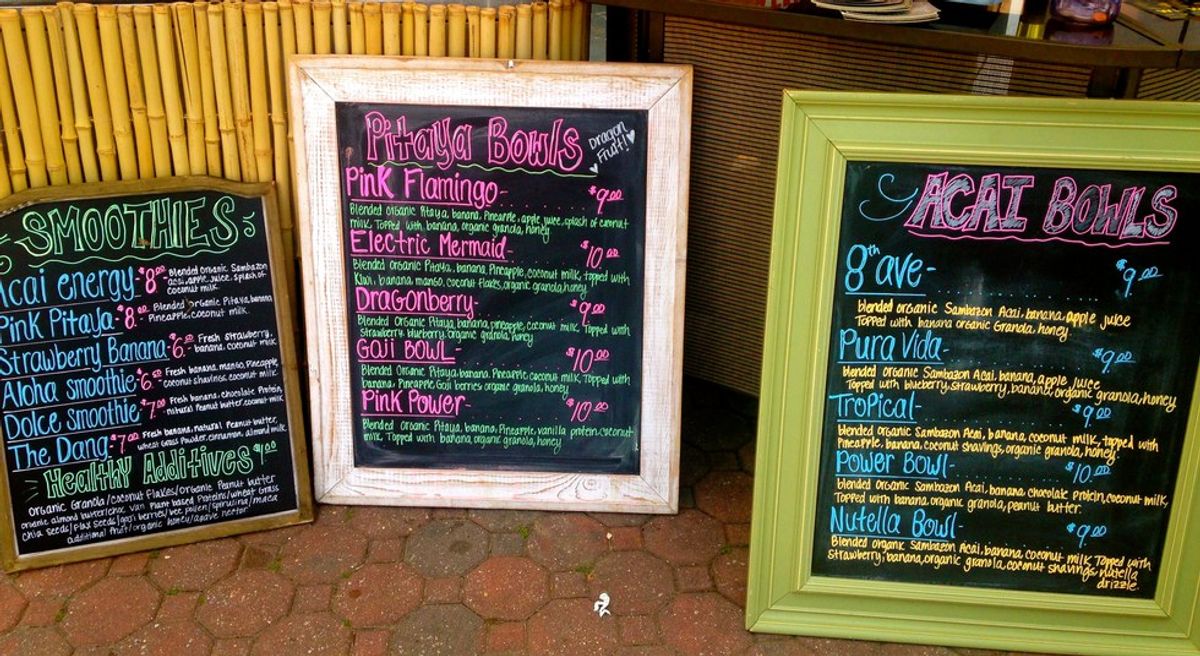 SMOOTHIES
Acai energy- $8.00 Blended organic Sambazon
acai, apple juice, splash of
coconut milk.
Pink Pitaya- $8.00 Blended organic Pitaya, banana,
Pineapple, coconut milk.
Strawberry Banana- $6.00 Fresh strawberry,
banana, coconut milk
Aloha smoothie- $6.50 Fresh banana, mango, Pineapple,
coconut shavings, coconut milk.
Dolce smoothie- $7.00 Fresh banana, chocolate Protein,
natural Peanut butter, coconut milk.
The Dang- $7.00 Fresh banana, natural Peanut butter,
wheat Grass Powder, cinnamon, almond milk.
Healthy Additives $1.00
organic Granola/coconut Flakes/organic Peanut butter
organic almond butter/choc van Plant based Proteins/wheat Grass
chia seeds/Flax Seeds/goji berries/bee pollen/spirulina/maca
additional fruit/organic honey/agave nectar
Pitaya Bowls
Dragon
Fruit!
Pink Flamingo- $9.00
Blended organic Pitaya, banana, Pineapple, apple juice, splash of coconut
milk. Topped with banana, organic granola, honey.
Electric Mermaid- $10.00
Blended Organic Pitaya, banana, Pineapple, coconut milk, topped with
Kiwi, banana, mango, coconut Flakes, organic granola, honey
Dragonberry- $9.00
Blended Organic Pitaya, banana, pineapple, coconut milk, Topped with
strawberry, blueberry, organic granola, honey.
GOJI BOWL- $10.00
Blended Organic Pitaya, banana, Pineapple coconut milk, topped with
banana, Pineapple Goji berries organic granola, honey
Pink Power- $10.00
Blended organic Pitaya, banana, Pineapple, vanilla protein, coconut
milk, Topped with banana, organic granola, honey
ACAI BOWLS
8th ave- $9.00
blended organic Sambazon Acai, banana, apple juice
Topped with banana organic Granola, honey.
Pura Vida- $9.00
blended organic Sambazon Acai, banana, apple juice
Topped with blueberry, strawberry, banana, organic granola, honey
Tropical- $9.00
blended organic Sambazon Acai, banana, coconut milk, topped with
Pineapple, banana, coconut shavings, organic granola, honey.
Power Bowl- $10.00
blended organic Sambazon Acai, banana chocolate protein, coconut milk,
Topped with banana, organic granola, peanut butter.
Nutella Bowl- $9.00
Blended organic Sambazon Acai, banana, coconut milk Topped with
strawberry, banana, organic granola, coconut shavings, nutella
drizzle.